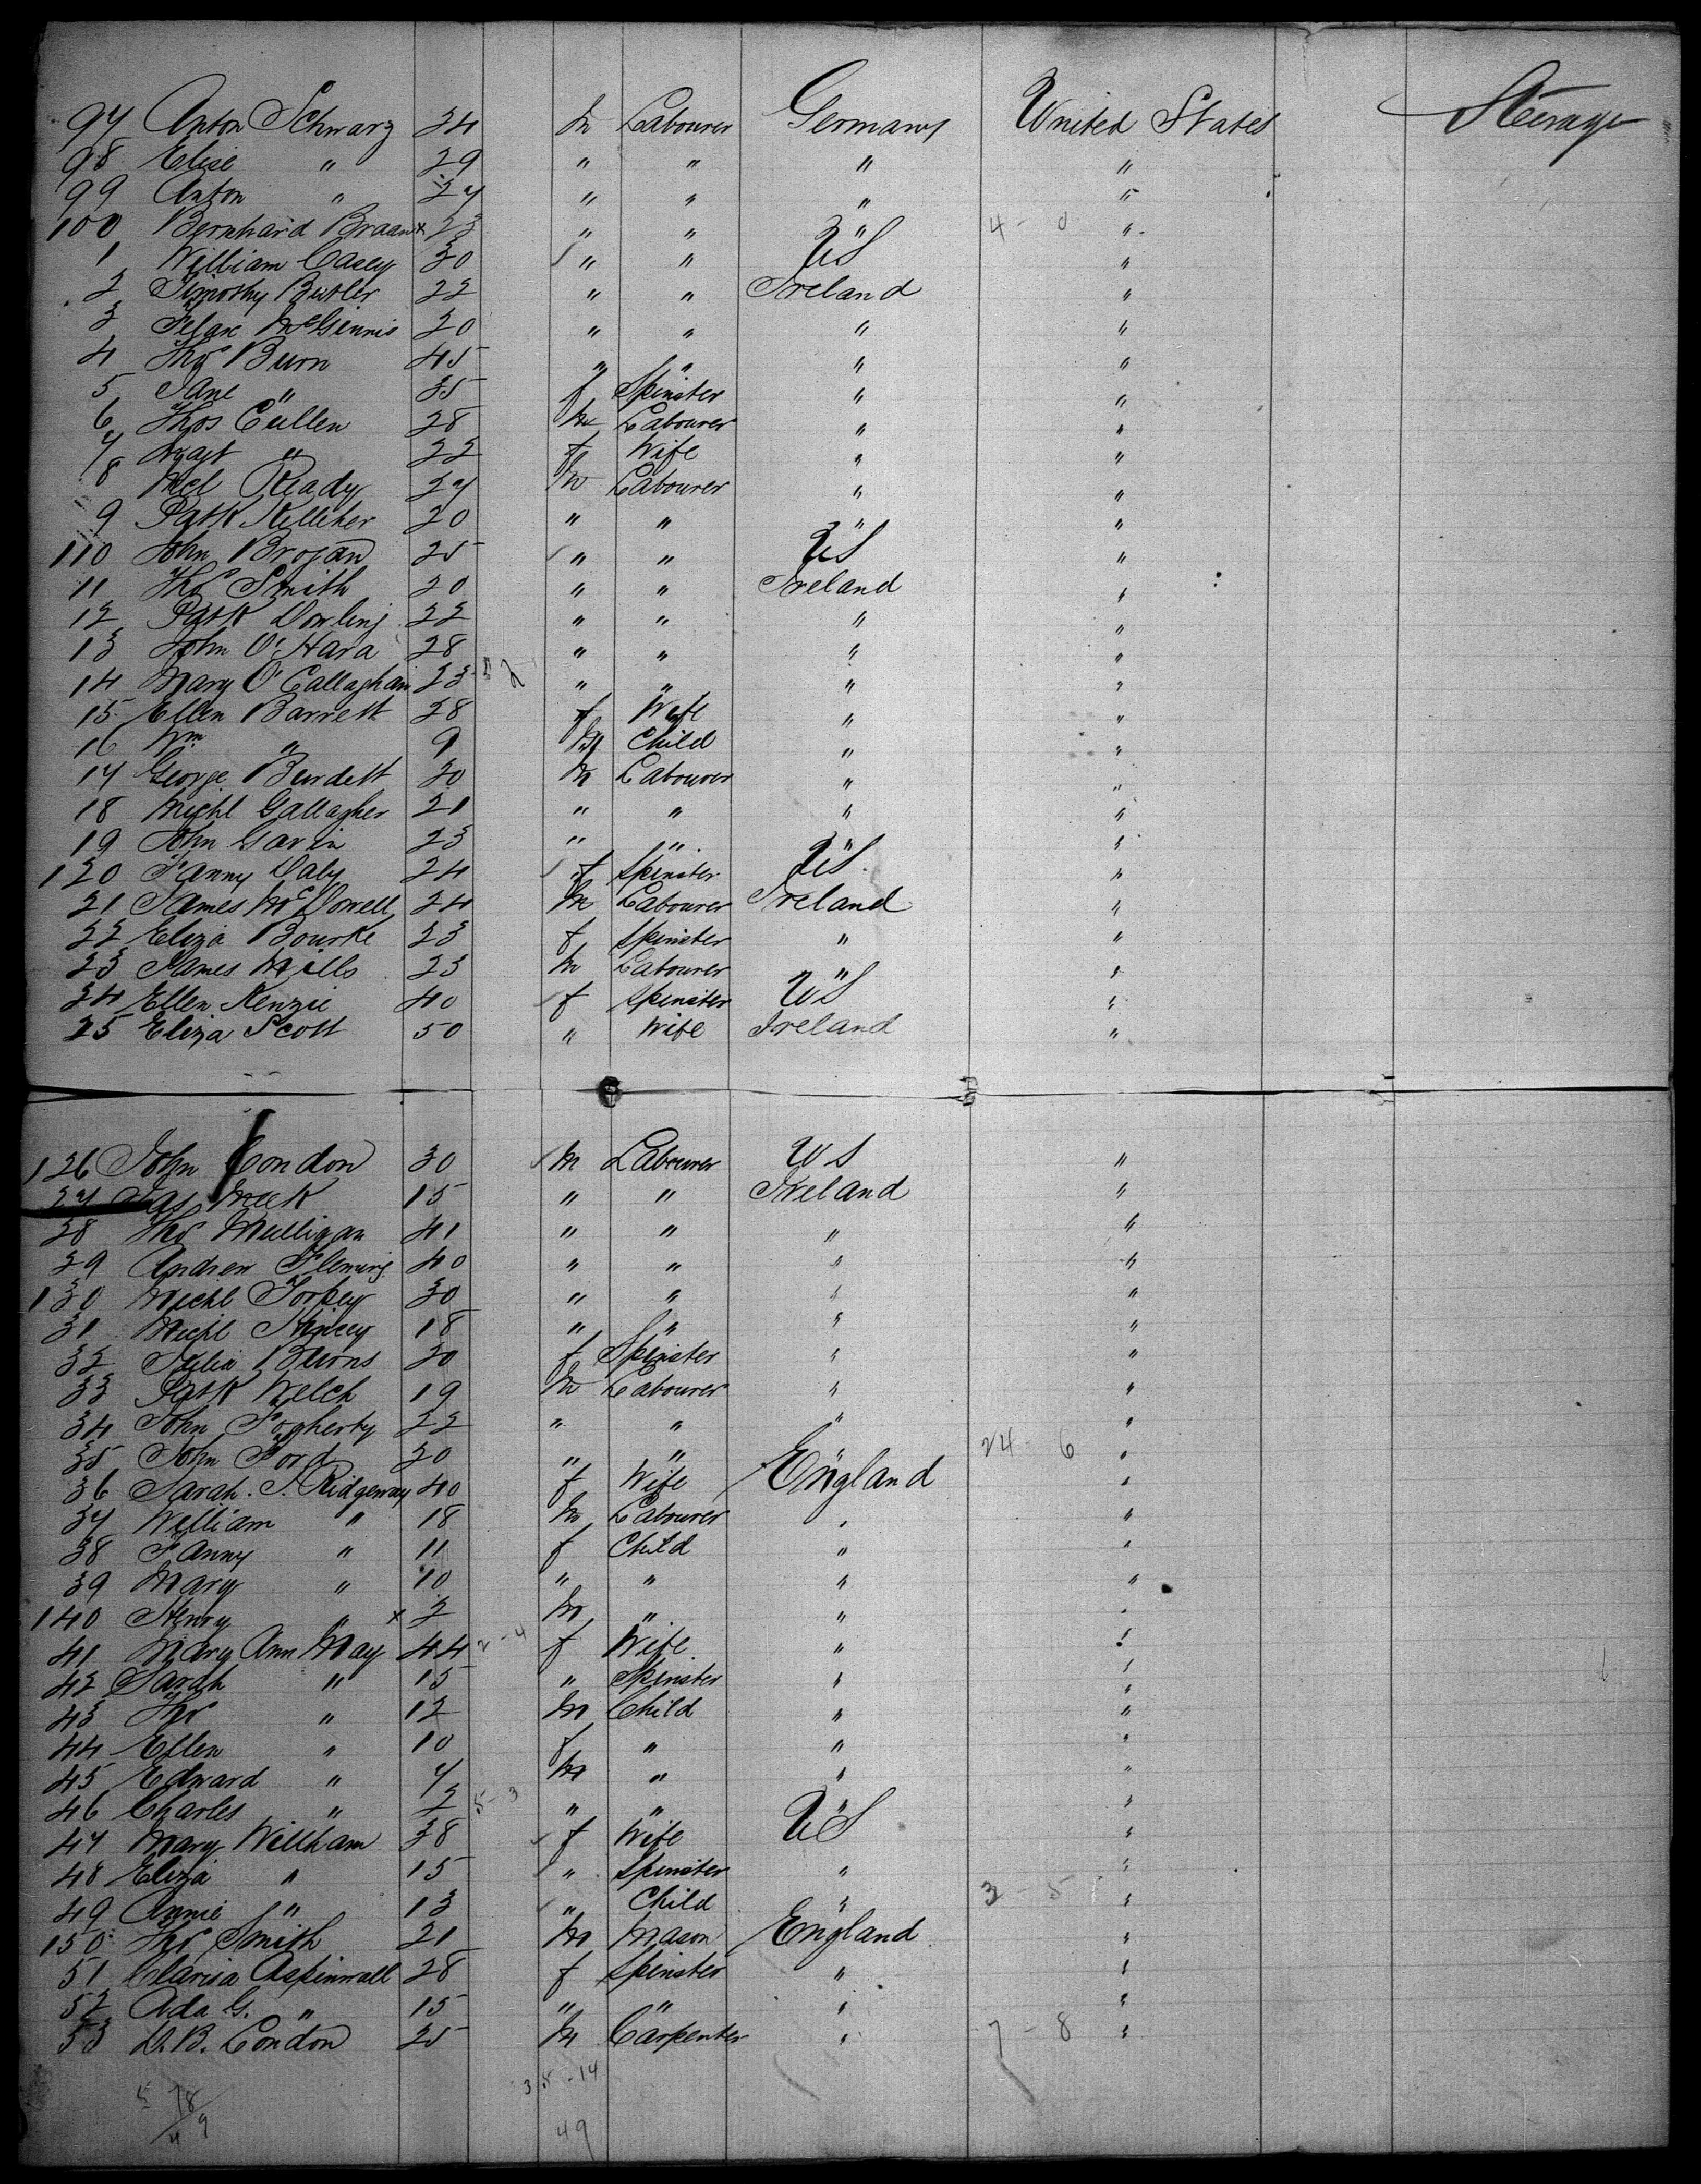 97 Anton Schwarz 24 m Labourer Germany United States Steerage
98 Elise " 29 " " " "
99 Anton " 27 " " " "
100 Bernhard Braan x 23 " " " 4 - 0 "
1 William Casey 30 " " US "
2 Timothy Butler 22 " " Ireland "
3 McGinnis 20 " " " "
4 Thos Burn 45 " " " "
5 Jane " 35 f Spinster " "
6 Thos Cullen 28 m Labourer " "
7 " 22 f Wife " "
8 Mcl Ready 27 m Labourer " "
9 Patk Kelleher 20 " " " "
110 John Brogan 25 " " US "
11 Thos Smith 20 " " Ireland "
12 Patk Dowling 22 " " " "
13 John O'Hara 28 " " " "
14 Mary O'Callaghan 23 " " " "
15 Ellen Barrett 28 f Wife " "
16 Wm " 9 m Child " "
17 George Burdett 30 m Labourer " "
18 Michl Gallagher 21 " " " "
19 John Gavin 23 " " " "
120 Fanny Daly 24 f Spinster US "
21 James McDowell 24 m Labourer Ireland "
22 Eliza Bourke 23 f Spinster " "
23 James Mills 23 m Labourer " "
24 Ellen Kenzie 40 f Spinster US "
25 Eliza Scott 50 " Wife Ireland "
126 John Condon 30 m Labourer US "
27 Jas Meek 15 " " Ireland "
28 Thos Mulligan 41 " " " "
29 Andrew Fleming 40 " " " "
130 Michl Torpey 30 " " " "
31 Michl 18 " " " "
32 Julia Burns 20 f Spinster " "
33 Patk Welch 19 m Labourer " "
34 John Fogherty 22 " " " "
35 John Ford 20 " " " 24 - 6 "
36 Sarah. J. Ridgeway 40 f Wife England "
37 William " 18 m Labourer " "
38 Fanny " 11 f Child " "
39 Mary " 10 " " " "
140 Henry " x 2 m " " "
41 Mary Ann May 44 2 - 4 f Wife " "
42 Sarah " 15 " Spinster " "
43 Thos " 12 m Child " "
44 Ellen " 10 f " " "
45 Edward " 7 m " " "
46 Charles " 2 5 - 3 " " " "
47 Mary Willham 38 f Wife US "
48 Eliza " 15 " Spinster " "
49 Annie " 13 " Child " 3 - 5 "
150 Thos Smith 21 m Mason England "
51 Clarisa Aspinwall 28 f Spinster " "
52 Ada G. " 15 " " " "
53 D.B. London 25 m Carpenter " 7 - 8 "
35 - 14
49